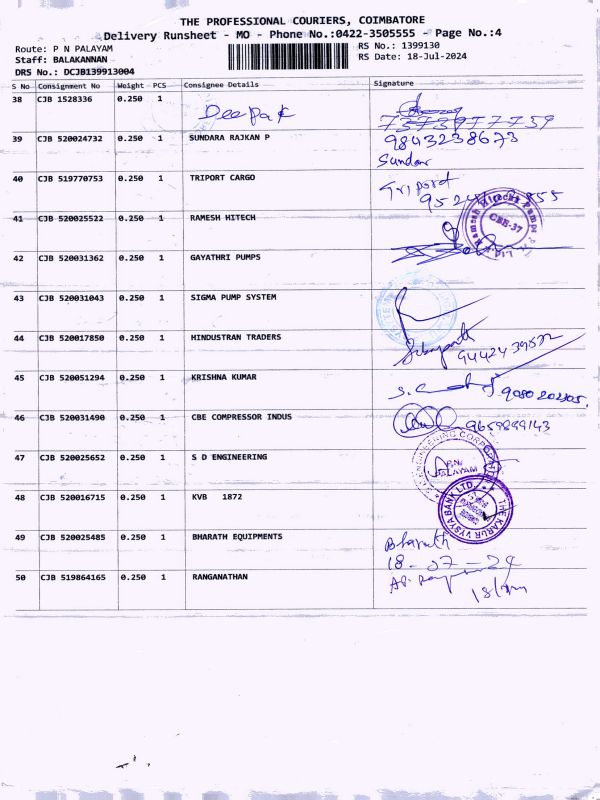 THE PROFESSIONAL COURIERS, COIMBATORE
Delivery Runsheet - MO - Phone No.:0422-3505555 - Page No.:4
Route: P N PALAYAM
RS No.: 1399130
Staff: BALAKANNAN
RS Date: 18-Jul-2024
DRS No.: DCJB139913004
S No Consignment No Weight PCS Consignee Details Signature
38 CJB 1528336 0.250 1 Deepak
39 CJB 520024732 0.250 1 SUNDARA RAJKAN P 9843238673
Sundar
40 CJB 519770753 0.250 1 TRIPORT CARGO Triport
41 CJB 520025522 0.250 1 RAMESH HITECH
Ramesh Hitech Pumps CBE-37
42 CJB 520031362 0.250 1 GAYATHRI PUMPS
43 CJB 520031043 0.250 1 SIGMA PUMP SYSTEM
44 CJB 520017850 0.250 1 HINDUSTRAN TRADERS
45 CJB 520051294 0.250 1 KRISHNA KUMAR
46 CJB 520031490 0.250 1 CBE COMPRESSOR INDUS 9659899143
47 CJB 520025652 0.250 1 S D ENGINEERING
ENGINEERING CORPORATION P.N. PALAYAM
48 CJB 520016715 0.250 1 KVB 1872
THE KARUR VYSYA BANK LTD.
49 CJB 520025485 0.250 1 BHARATH EQUIPMENTS Bharath
18-07-24
50 CJB 519864165 0.250 1 RANGANATHAN